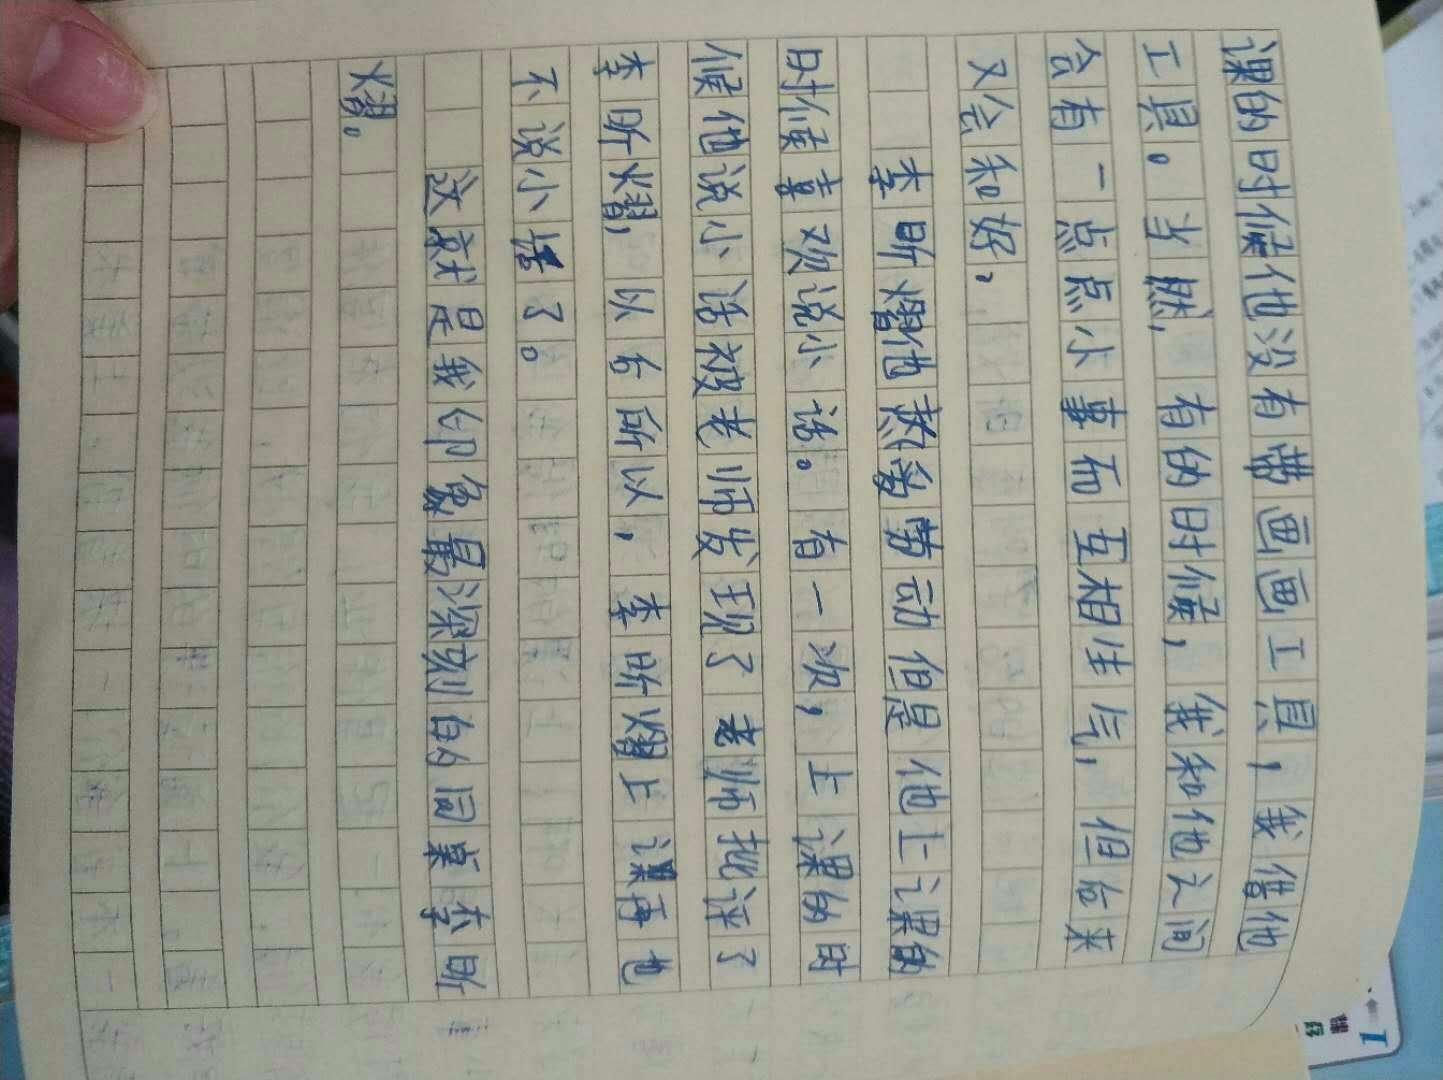 课的时候他没有带画画工具，我借他
工具。当然，有的时候，我和他之间
会有一点点小事而互相生气，但后来
又会和好。
李昕熠他热爱劳动但是他上课的
时候喜欢说小话。有一次，上课的时
候他说小话被老师发现了老师批评了
李昕熠，以后所以，李昕熠上课再也
不说小话了。
这就是我印象最深刻的同桌李昕
熠。